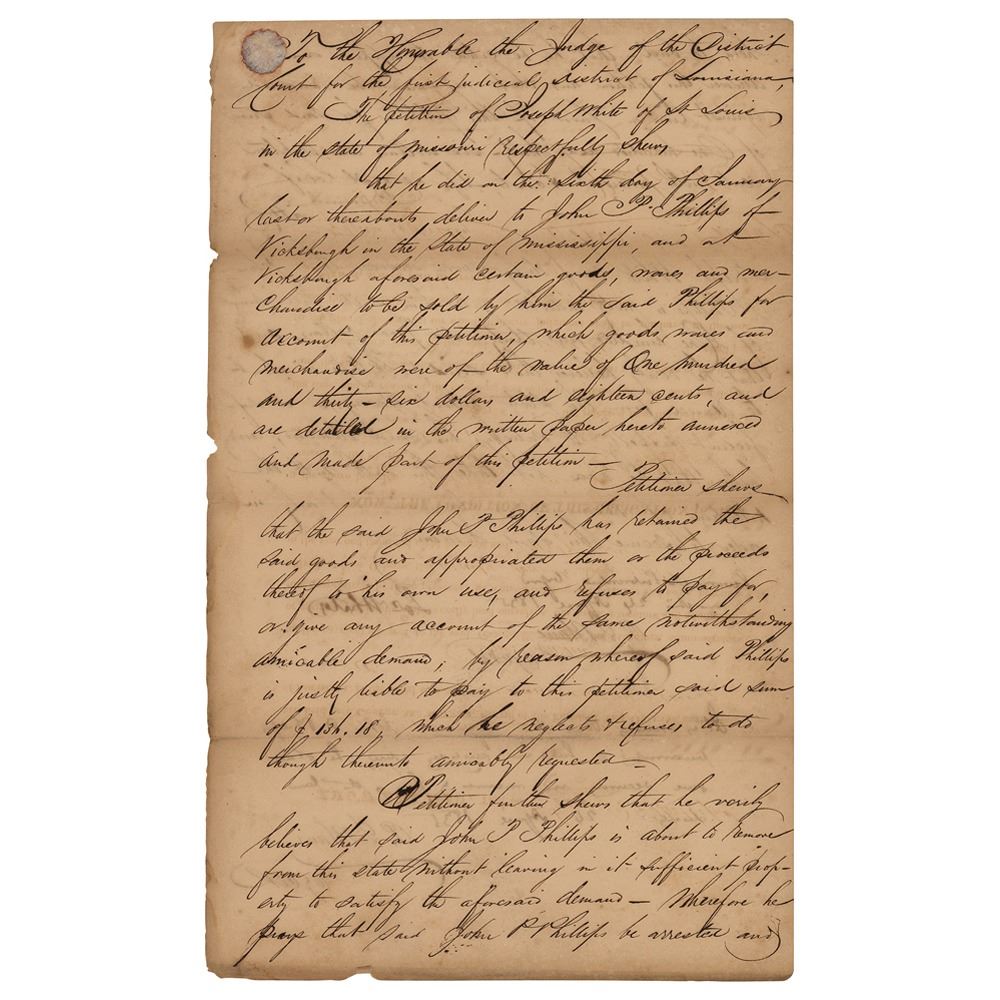 To the Honorable the Judge of the District
Court for the first judicial district of Louisiana,
The petition of Joseph White of St Louis
in the state of Missouri respectfully shews
that he did on the sixth day of January
last or thereabouts, deliver to John P. Phillips of
Vicksburgh in the State of Mississippi, and at
Vicksburgh aforesaid certain goods, wares and mer-
chandise to be sold by him the said Phillips for
account of this petitioner, which goods wares and
merchandise were of the value of One hundred
and thirty-six dollars and eighteen cents, and
are detailed in the written paper hereto annexed
and made part of this petition —
Petitioner shews
that the said John P Phillips has retained the
said goods and appropriated them or the proceeds
thereof to his own use, and refuses to pay for,
or give any account of the same notwithstanding
amicable demand, by reason whereof said Phillips
is justly liable to pay to this petitioner said sum
of $ 136.18, which he neglects & refuses to do
though thereunto amicably requested —
Petitioner further shews that he verily
believes that said John P Phillips is about to remove
from this state without leaving in it sufficient prop-
erty to satisfy the aforesaid demand — Wherefore he
prays that said John P Phillips be arrested and